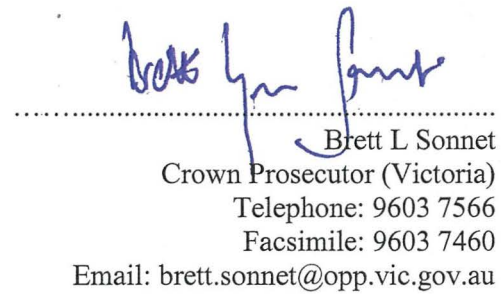 Brett Lynn Sonnet
........................................................................
Brett L Sonnet
Crown Prosecutor (Victoria)
Telephone: 9603 7566
Facsimile: 9603 7460
Email: brett.sonnet@opp.vic.gov.au